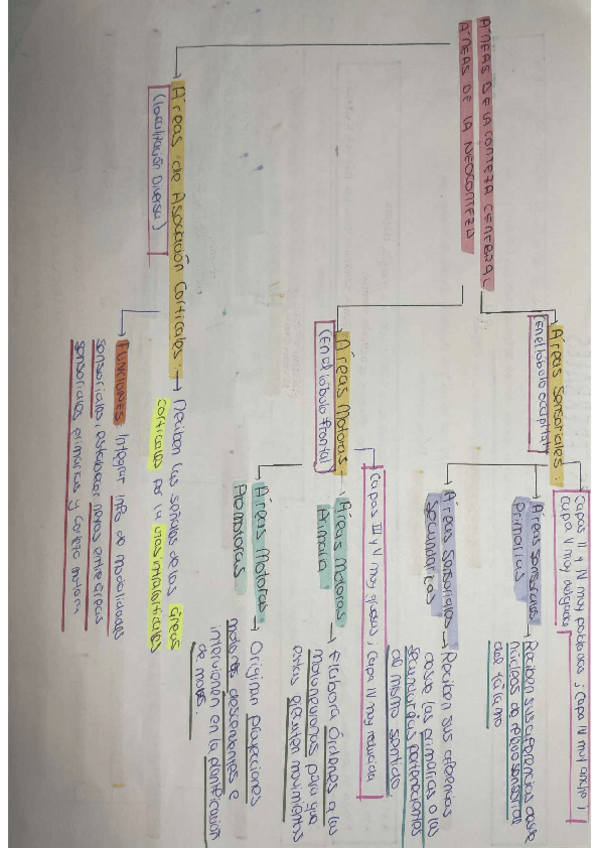 ÁREAS DE LA CORTEZA CEREBRAL
ÁREAS DE LA NEOCORTEZA
Áreas sensoriales:
(En el lóbulo occipital)
Capas II y IV muy pobladas; Capa IV muy ancha;
capa V muy delgada
Áreas sensoriales
Primarias
→ Reciben sus aferencias desde
núcleos de relevo sensorial
del tálamo
Áreas sensoriales
secundarias
→ Reciben sus aferencias
desde las primarias o las
secundarias pertenecientes
al mismo sentido
Áreas Motoras:
(En el lóbulo frontal)
Capas III y V muy gruesas; Capa IV muy reducida
Áreas Motoras
Primaria
→ Elabora órdenes a las
Motoneuronas para que
estas ejecuten movimientos
Áreas Motoras
Premotoras
→ Originan proyecciones
motoras descendentes e
intervienen en la planificación
de movs.
Áreas de Asociación Corticales:
(Localización Diversa)
→ Reciben las señales de las áreas
corticales por la vías intracorticales
FUNCIONES: Integrar info de modalidades
sensoriales, establecer nexos entre áreas
sensoriales primarias y corteza motora